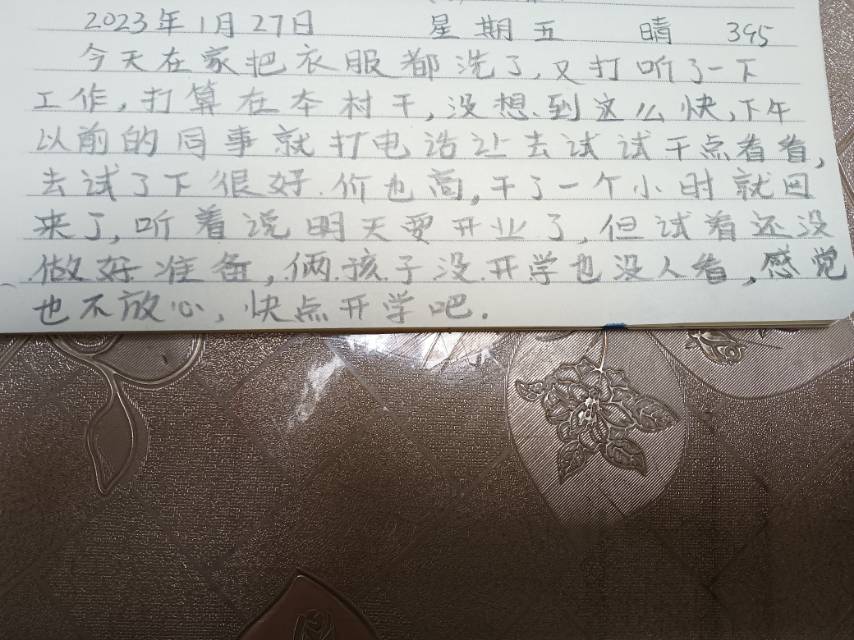 2023年1月27日 星期五 晴 395
今天在家把衣服都洗了,又打听了一下
工作,打算在本村干,没想到这么快,下午
以前的同事就打电话让去试试干点看看,
去试了下很好.价也高,干了一个小时就回
来了,听着说明天要开业了,但试着还没
做好准备,俩孩子没开学也没人看,感觉
也不放心,快点开学吧.